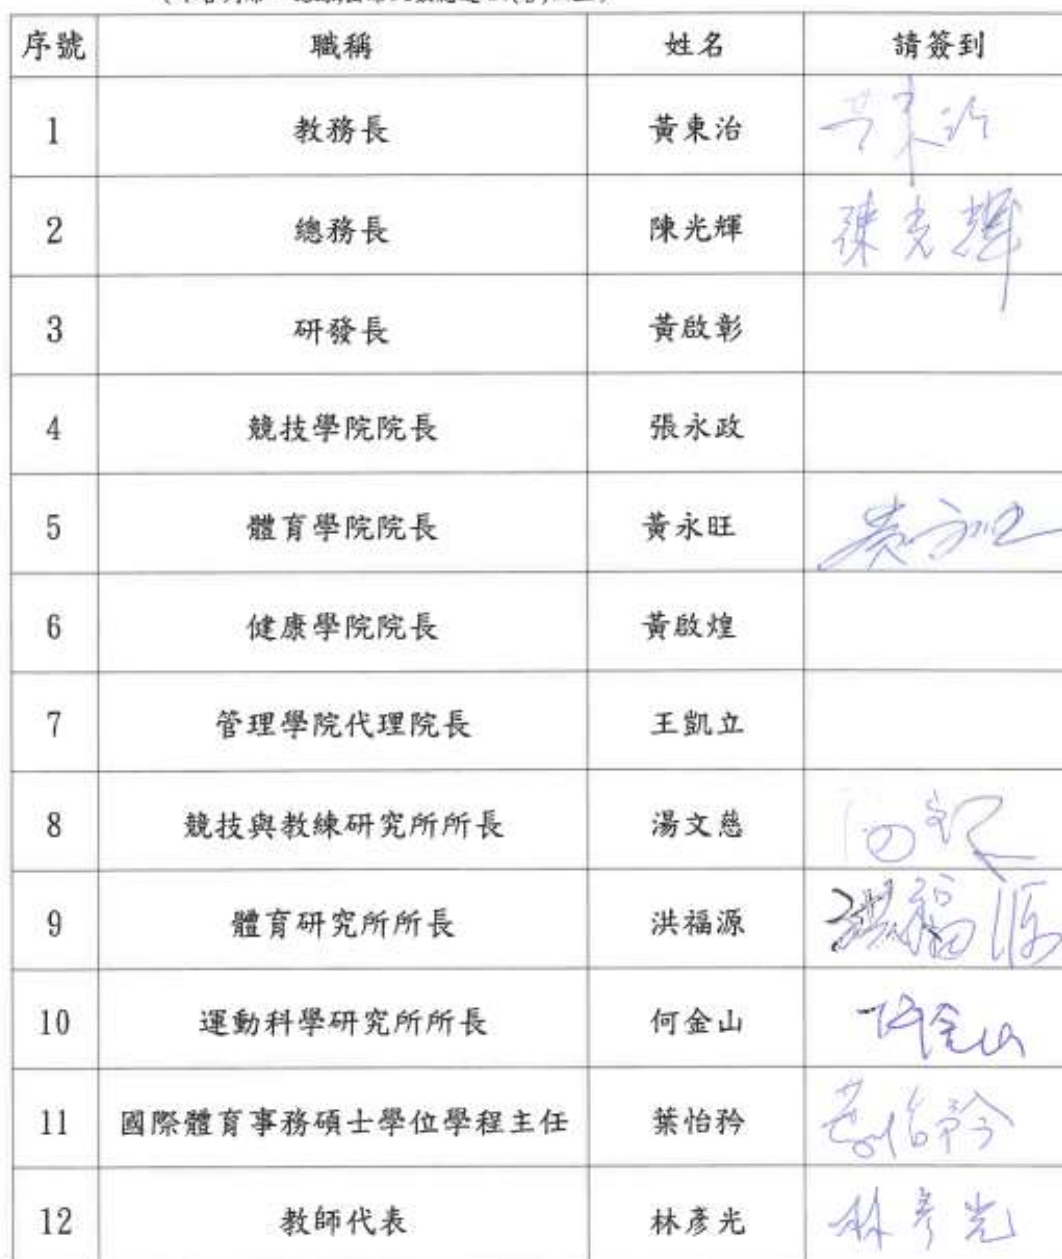 序號 職稱 姓名 請簽到
1 教務長 黃東治 黃東治
2 總務長 陳光輝 陳光輝
3 研發長 黃啟彰
4 競技學院院長 張永政
5 體育學院院長 黃永旺 黃永旺
6 健康學院院長 黃啟煌
7 管理學院代理院長 王凱立
8 競技與教練研究所所長 湯文慈
9 體育研究所所長 洪福源 洪福源
10 運動科學研究所所長 何金山 何金山
11 國際體育事務碩士學位學程主任 葉怡矜 葉怡矜
12 教師代表 林彥光 林彥光